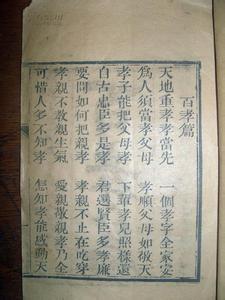 百孝篇
天地重孝孝當先 一個孝字全家安
為人須當孝父母 孝順父母如敬天
孝子能把父母孝 下輩孝兒照樣還
自古忠臣多是孝 君選賢臣多孝廉
要問如何把親孝 孝親不止在吃穿
孝親不教親生氣 愛親敬親孝乃全
可惜人多不知孝 怎知孝能感動天